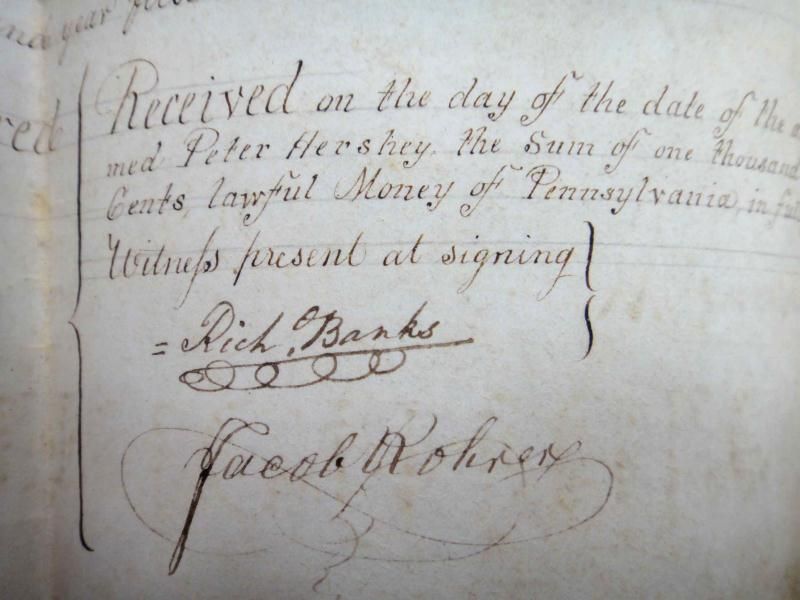 and year
red
Received on the day of the date of the
med Peter Hershey, the Sum of one thousand
Cents, lawful Money of Pennsylvania, in full
Witneſs present at signing
= Richd. Banks
Jacob Rohrer